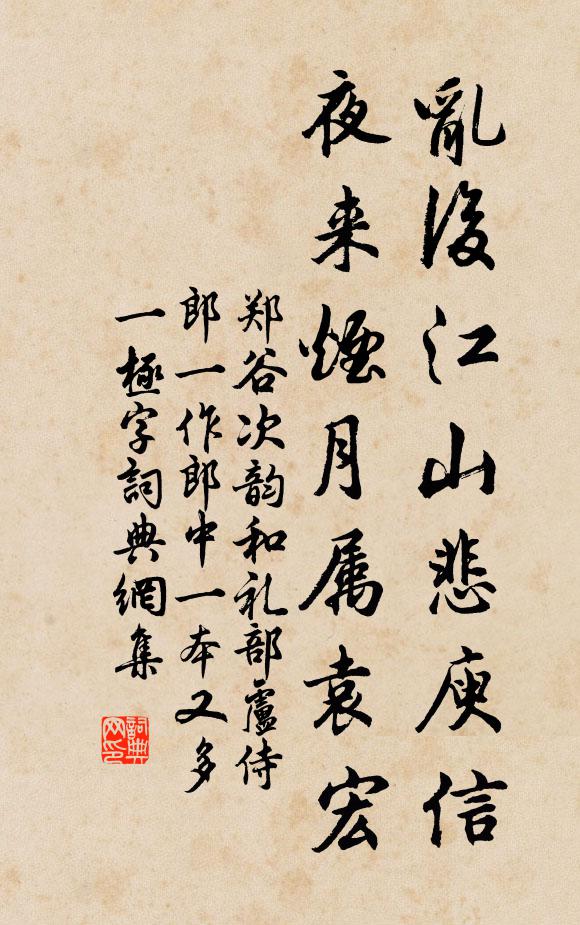 亂後江山悲庾信
夜来煙月属袁宏
郑谷次韵和礼部盧侍
郎一作郎中一本又多
一極字詞典網集
詞典
网印